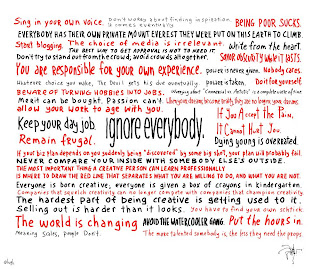 Sing in your own voice. Don't worry about finding inspiration. It comes eventually. BEING POOR SUCKS.
EVERYBODY HAS THEIR OWN PRIVATE MOUNT EVEREST THEY WERE PUT ON THIS EARTH TO CLIMB.
Start blogging. The choice of media is irrelevant. Write from the heart.
THE BEST WAY TO GET APPROVAL IS NOT TO NEED IT.
Don't try to stand out from the crowd; avoid crowds altogether. SAVOR OBSCURITY WHILE IT LASTS.
You are responsible for your own experience. Power is never given. Nobody cares.
Whatever choice you make, The Devil gets his due eventually. Power is taken. Do it for yourself.
BEWARE OF TURNING HOBBIES INTO JOBS. Worrying about "Commercial vs. Artistic" is a complete waste of time.
Merit can be bought. Passion can't. When your dreams become reality, they are no longer your dreams.
Allow your work to age with you. If You Accept The Pain,
Keep your day job. ignore everybody. It Cannot Hurt You.
Remain frugal. Dying young is overrated.
If your biz plan depends on you suddenly being "discovered" by some big shot, your plan will probably fail.
NEVER COMPARE YOUR INSIDE WITH SOMEBODY ELSE'S OUTSIDE.
THE MOST IMPORTANT THING A CREATIVE PERSON CAN LEARN PROFESSIONALLY
IS WHERE TO DRAW THE RED LINE THAT SEPARATES WHAT YOU ARE WILLING TO DO, AND WHAT YOU ARE NOT.
Everyone is born creative; everyone is given a box of crayons in kindergarten.
Companies that squelch creativity can no longer compete with companies that champion creativity.
The hardest part of being creative is getting used to it.
Selling out is harder than it looks. You have to find your own schtick
The world is changing AVOID THE WATERCOOLER GANG. Put the hours in.
Meaning Scales, People Don't. The more talented somebody is, the less they need the props